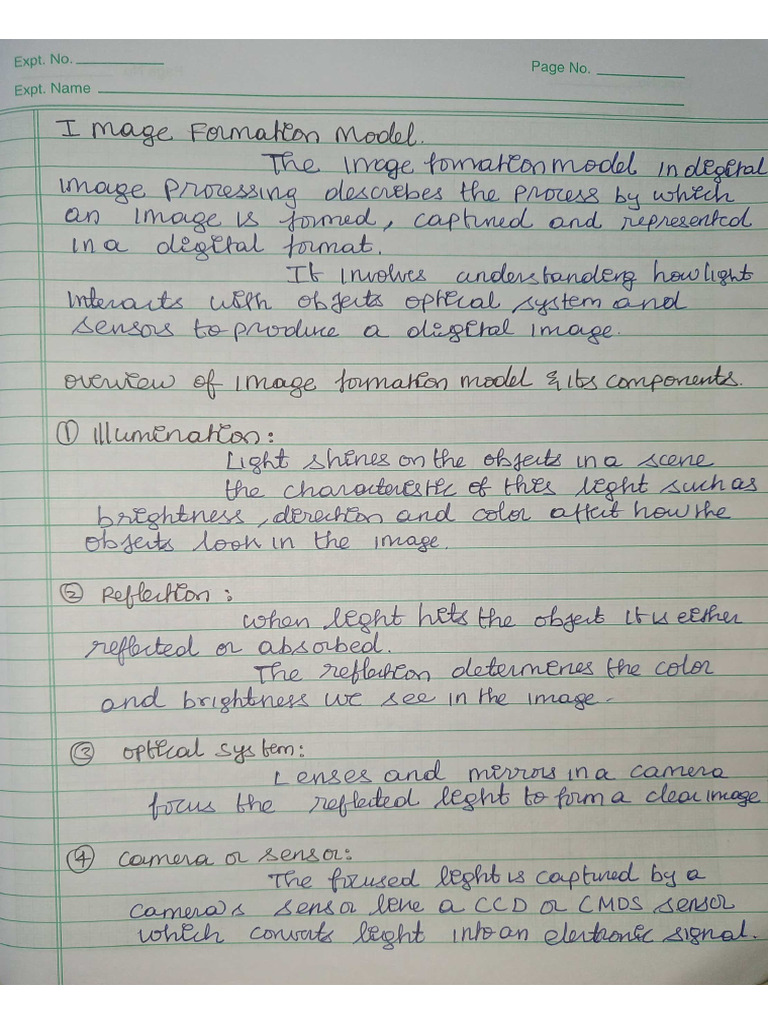 Expt. No.
Page No.
Expt. Name
Image Formation Model.
The image formation model in digital
image processing describes the process by which
an image is formed, captured and represented
in a digital format.
It involves understanding how light
interacts with objects optical system and
sensors to produce a digital image.
overview of image formation model & its components.
① illumination:
Light shines on the objects in a scene
the characteristic of this light such as
brightness, direction and color affect how the
objects look in the image.
② Reflection:
when light hits the object it is either
reflected or absorbed.
The reflection determines the color
and brightness we see in the image.
③ optical system:
Lenses and mirrors in a camera
focus the reflected light to form a clear image
④ camera or sensor:
The focused light is captured by a
camera's sensor like a CCD or CMOS sensor
which converts light into an electronic signal.